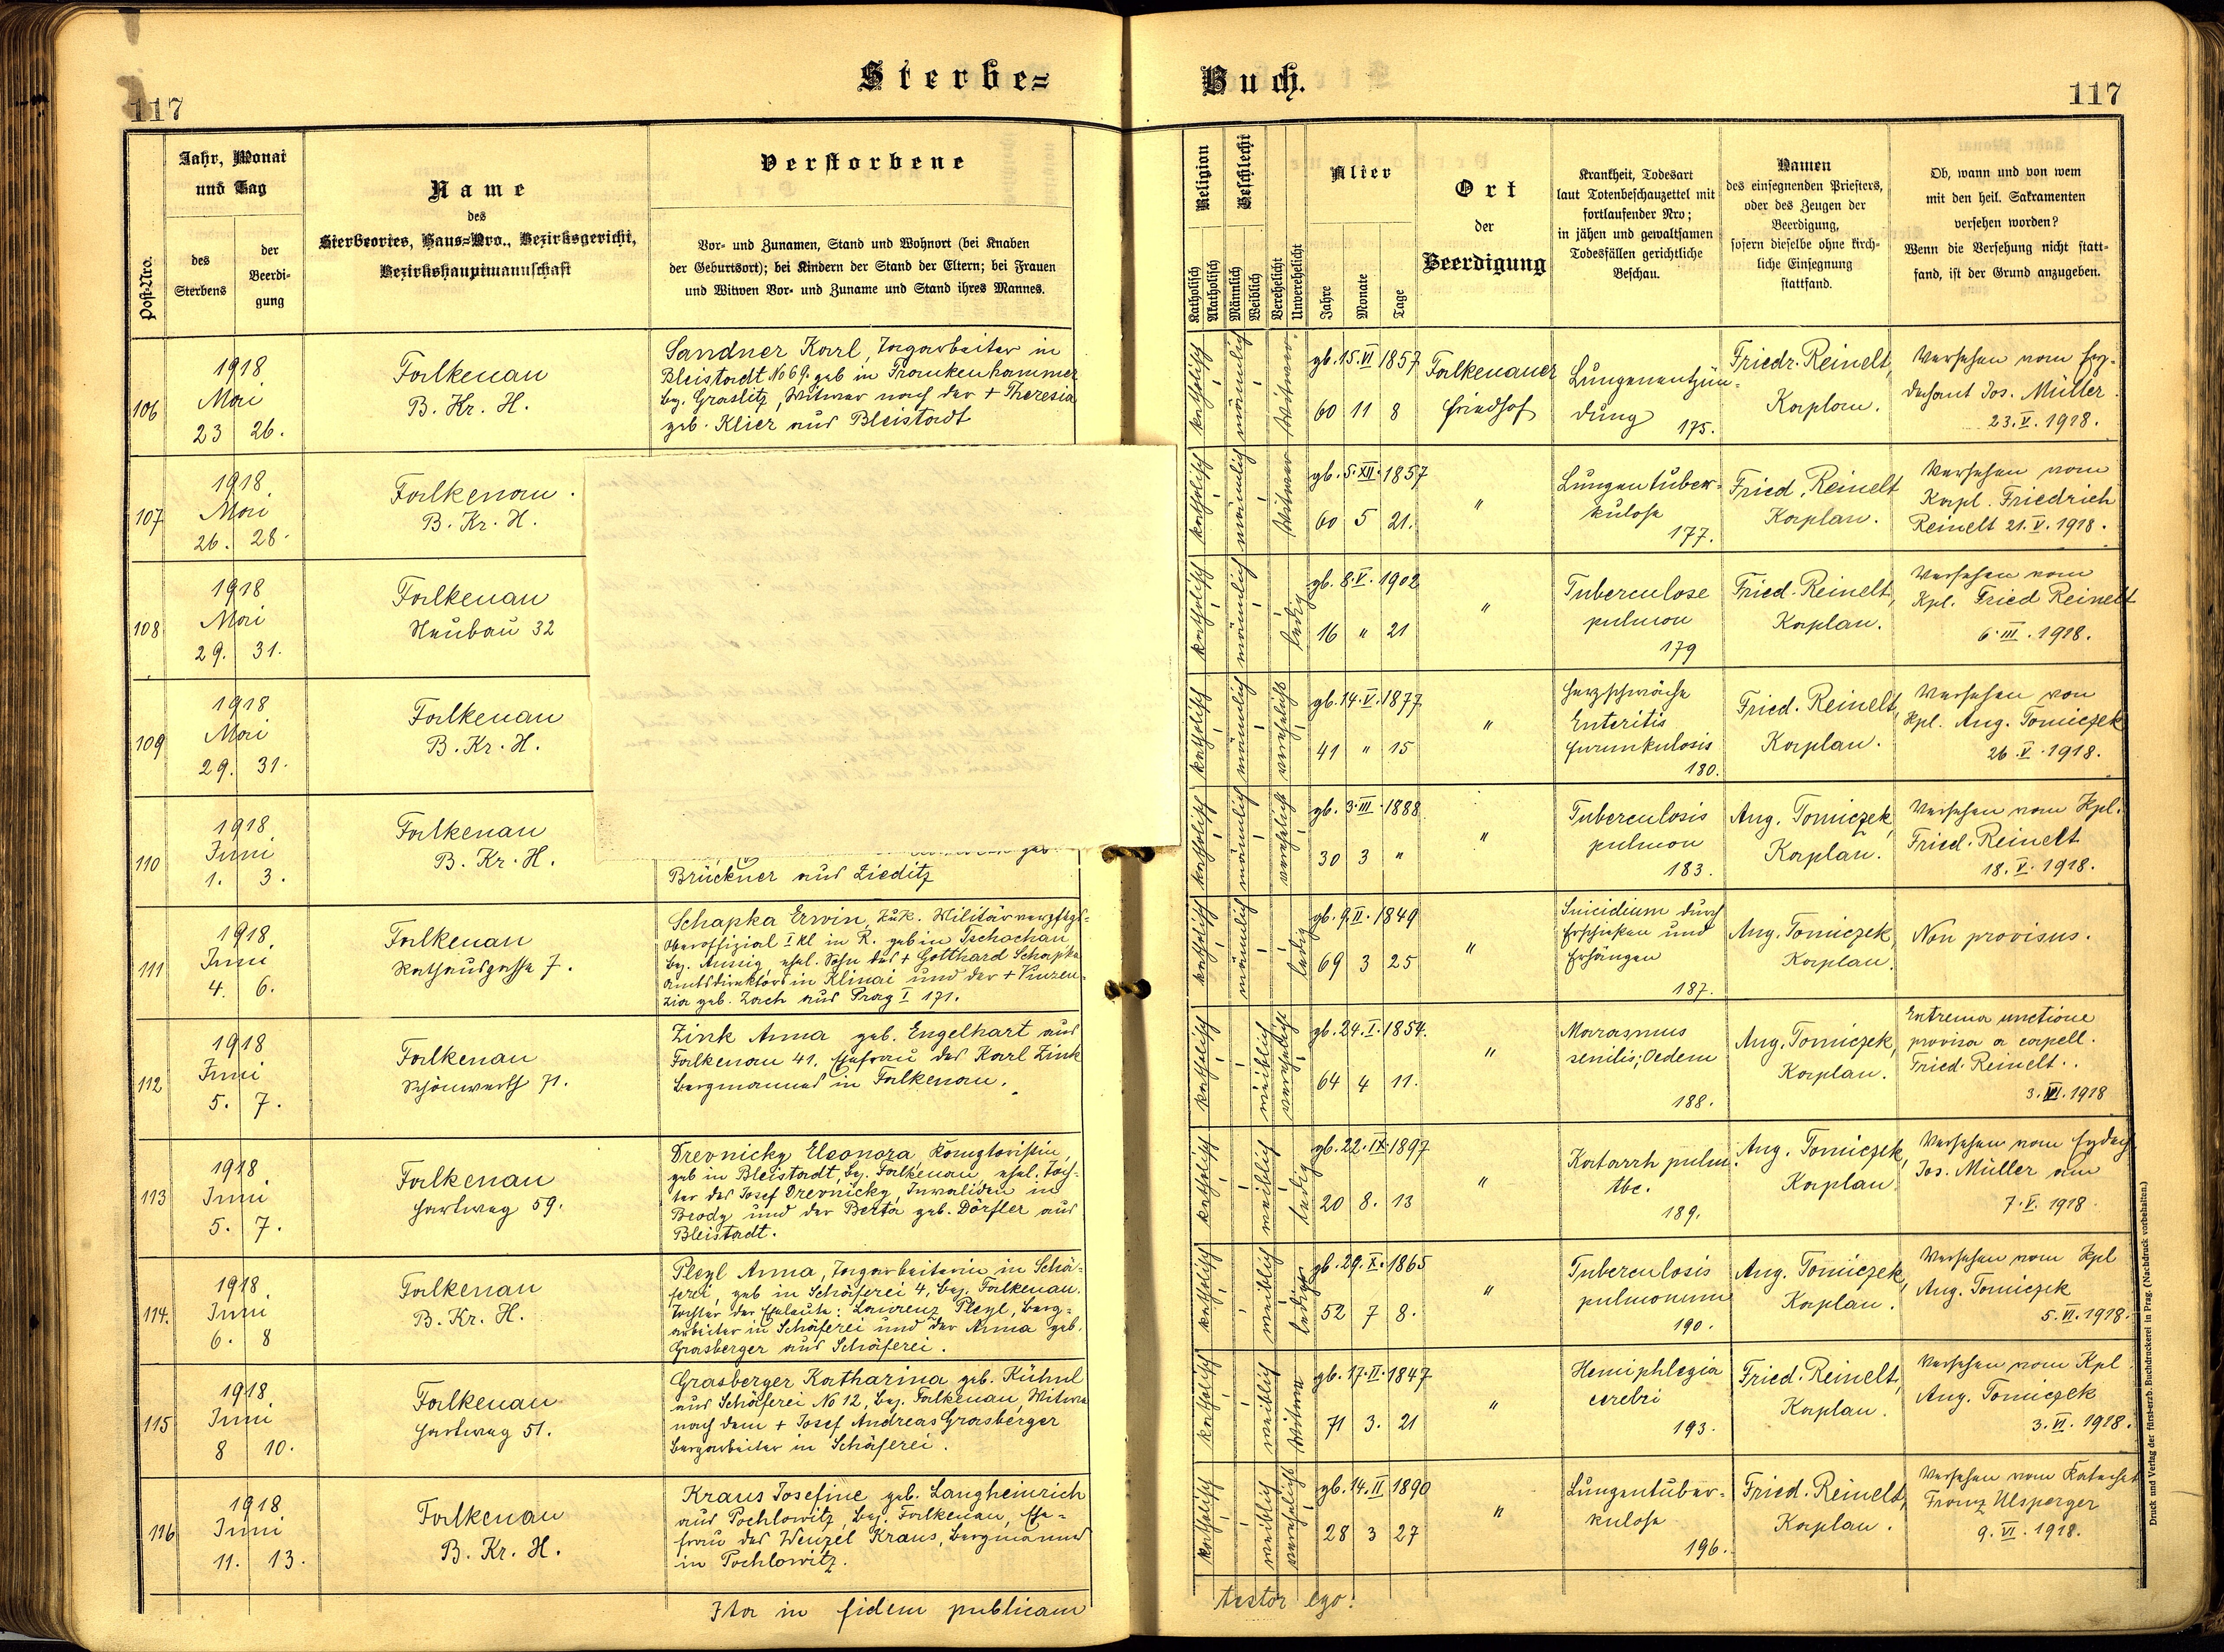 Sterbe=
Buch.
117
117
Post-Nro.
Jahr, Monat
und Tag
des
Sterbens
der
Beerdi-
gung
Name
des
Sterbeortes, Haus=Nro., Bezirksgericht,
Bezirkshauptmannschaft
Verstorbene
Vor- und Zunamen, Stand und Wohnort (bei Knaben
der Geburtsort); bei Kindern der Stand der Eltern; bei Frauen
und Witwen Vor- und Zuname und Stand ihres Mannes.
Religion
Katholisch
Akatholisch
Geschlecht
Männlich
Weiblich
Verehelicht
Unverehelicht
Alter
Jahre
Monate
Tage
Ort
der
Beerdigung
Krankheit, Todesart
laut Totenbeschauzettel mit
fortlaufender Nro;
in jähen und gewaltsamen
Todesfällen gerichtliche
Beschau.
Namen
des einsegnenden Priesters,
oder des Zeugen der
Beerdigung,
sofern dieselbe ohne kirch-
liche Einsegnung
stattfand.
Ob, wann und von wem
mit den heil. Sakramenten
versehen worden?
Wenn die Versehung nicht statt-
fand, ist der Grund anzugeben.
106
1918
Mai
23 26.
Falkenau
B. Kr. H.
Sandner Karl, Tagarbeiter in
Bleistadt No 69. geb in Frankenhammer
bez. Graslitz, Witwer nach der + Theresia
geb. Klier aus Bleistadt
katholisch
männlich
Witwer
gb. 15. VI 1857
60 11 8
Falkenauer
Friedhof
Lungenentzün-
dung
175.
Friedr. Reinelt,
Kaplan.
Versehen vom Erz-
dechant Jos. Müller
23. V. 1918.
107
1918
Mai
26. 28.
Falkenau.
B. Kr. H.
katholisch
männlich
Witwer
gb. 5. XII. 1857
60 5 21.
"
Lungentuber-
kulose
177.
Fried. Reinelt
Kaplan.
Versehen vom
Kapl. Friedrich
Reinelt 21. V. 1918.
108
1918
Mai
29. 31.
Falkenau
Neubau 32
katholisch
männlich
ledig
gb. 8. V. 1902
16 " 21
"
Tuberculose
pulmon
179
Fried. Reinelt,
Kaplan.
Versehen vom
Kpl. Fried Reinelt
6. III. 1918.
109
1918
Mai
29. 31.
Falkenau
B. Kr. H.
katholisch
männlich
verehelicht
gb. 14. V. 1877
41 " 15
"
Herzschwäche
Enteritis
Furunkulosis
180.
Fried. Reinelt,
Kaplan.
Versehen von
Kpl. Aug. Tomiczek
26. V. 1918.
110
1918
Juni
1. 3.
Falkenau
B. Kr. H.
geb.
Brückner aus Zieditz
katholisch
männlich
verehelicht
gb. 3. III. 1888
30 3 "
"
Tuberculosis
pulmon
183.
Aug. Tomiczek,
Kaplan.
Versehen vom Kpl.
Fried. Reinelt
18. V. 1918.
111
1918
Juni
4. 6.
Falkenau
Rathausgasse 7.
Schapka Erwin, k.u.k. Militärverpflegs-
oberoffizial I kl in R. geb in Tschochau
bez. Aussig ehel. Sohn des + Gotthard Schapka
Amtsdirektors in Klinai und der + Vinzen-
zia geb. Zach aus Prag I 171.
katholisch
männlich
ledig
gb. 9. II. 1849
69 3 25
"
Suicidium durch
Erschießen und
Erhängen
187.
Aug. Tomiczek,
Kaplan.
Non provisus.
112
1918
Juni
5. 7.
Falkenau
Schönwerth 71.
Zink Anna geb. Engelhart aus
Falkenau 41. Ehefrau des Karl Zink
Bergmannes in Falkenau.
katholisch
weiblich
verehelicht
gb. 24. I. 1854.
64 4 11.
"
Marasmus
senilis; Oedem
188.
Aug. Tomiczek,
Kaplan.
Extrema unctione
provisa a capell.
Fried. Reinelt.
3. VI. 1918
113
1918
Juni
5. 7.
Falkenau
Hartweg 59.
Drevnicky Eleonora, Komptoristin,
geb in Bleistadt, bez. Falkenau, ehel. Toch-
ter des Josef Drevnicky, Invaliden in
Brody und der Berta geb. Dörfler aus
Bleistadt.
katholisch
weiblich
ledig
gb. 22. IX. 1897
20 8. 13
"
Katarrh pulm.
tbc.
189.
Aug. Tomiczek,
Kaplan
Versehen vom Erzdech.
Jos. Müller am
7. V. 1918.
114.
1918
Juni
6. 8
Falkenau
B. Kr. H.
Pleyl Anna, Tagarbeiterin in Schä-
ferei, geb in Schäferei 4, bez. Falkenau.
Tochter der Eheleute: Laurenz Pleyl, Berg-
arbeiter in Schäferei und der Anna geb.
Grasberger aus Schäferei.
katholisch
weiblich
ledig
gb. 29. X. 1865
52 7 8.
"
Tuberculosis
pulmonum
190.
Aug. Tomiczek,
Kaplan.
Versehen vom Kpl
Aug. Tomiczek
5. VI. 1918.
115
1918
Juni
8 10.
Falkenau
Hartweg 51.
Grasberger Katharina geb. Kühnl
aus Schäferei No 12, bez. Falkenau, Witwe
nach dem + Josef Andreas Grasberger
Bergarbeiter in Schäferei.
katholisch
weiblich
Witwe
gb. 17. II. 1847
71 3. 21
"
Hemiphlegia
cerebri
193.
Fried. Reinelt,
Kaplan.
Versehen vom Kpl.
Aug. Tomiczek
3. VI. 1918.
116
1918
Juni
11. 13.
Falkenau
B. Kr. H.
Kraus Josefine geb. Langheinrich
aus Pochlowitz, bez. Falkenau, Ehe-
frau des Wenzel Kraus, Bergmannes
in Pochlowitz.
katholisch
weiblich
verehelicht
gb. 14. II 1890
28 3 27
"
Lungentuber-
kulose
196.
Fried. Reinelt,
Kaplan.
Versehen vom Katechet
Franz Ulsperger
9. VI. 1918.
Ita in fidem publicam
testor ego:
Druck und Verlag der fürst-erzb. Buchdruckerei in Prag. (Nachdruck vorbehalten.)